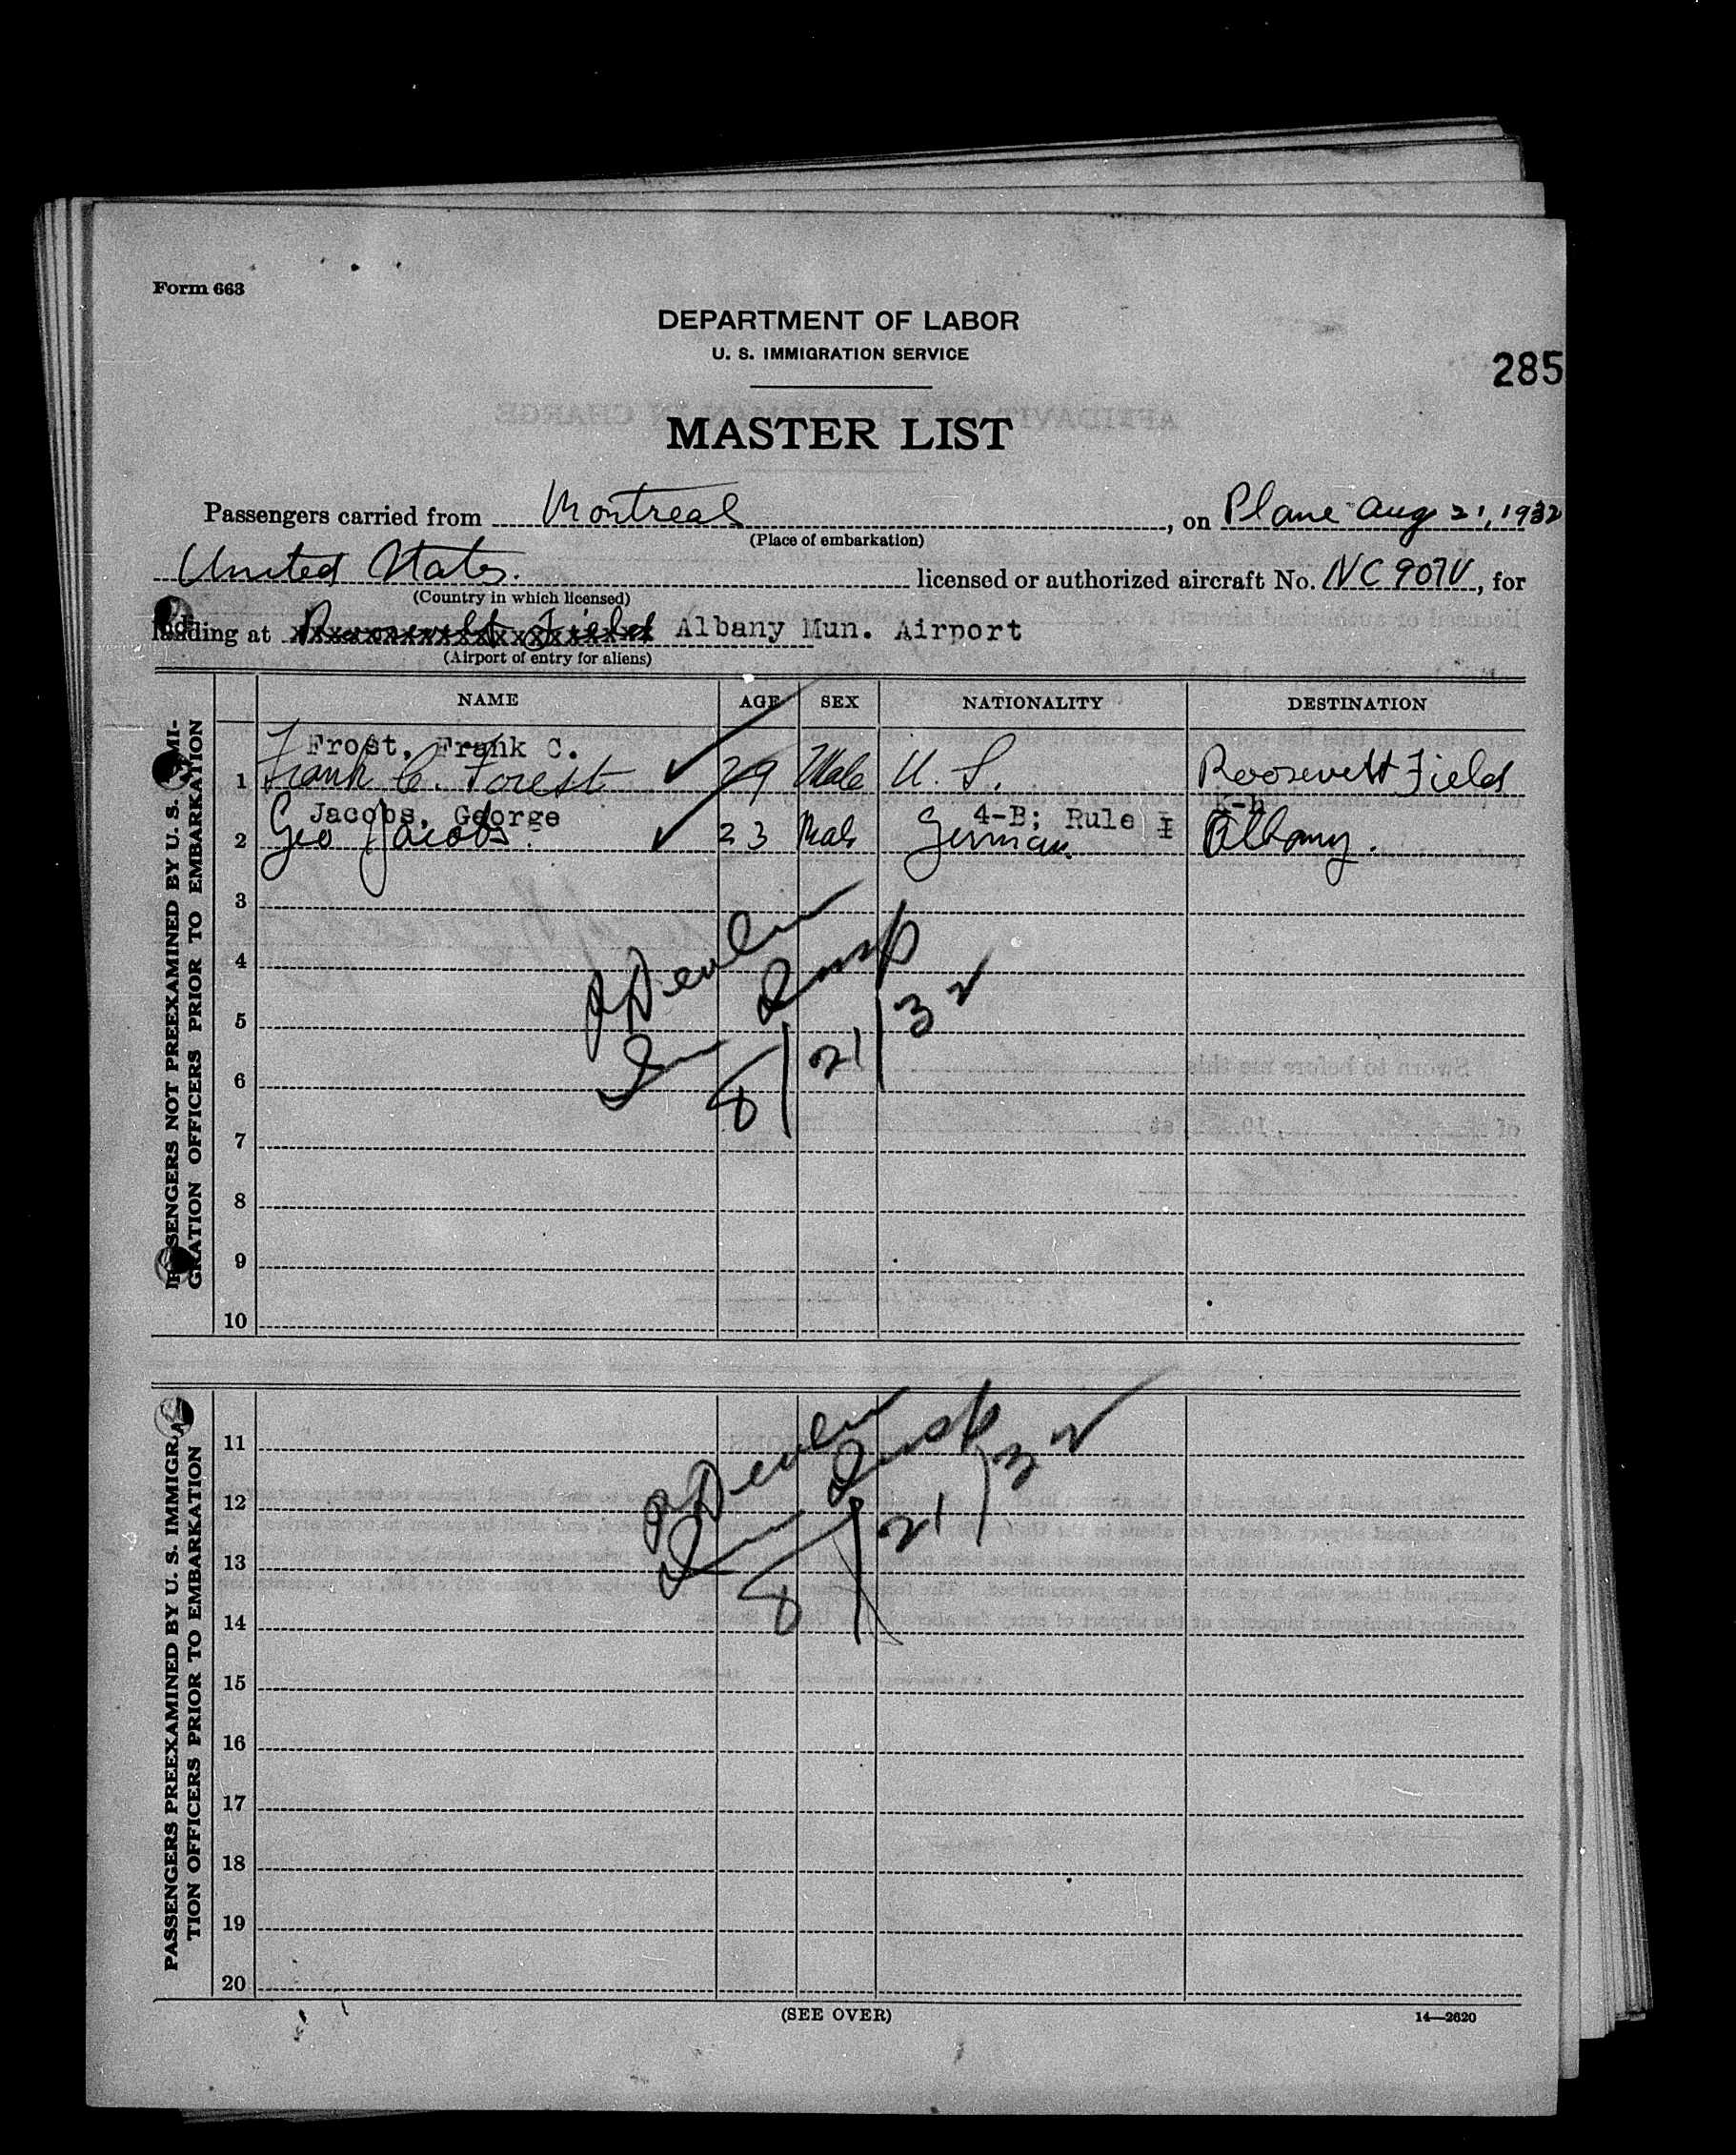 Form 663
DEPARTMENT OF LABOR
U. S. IMMIGRATION SERVICE
285
MASTER LIST
Passengers carried from Montreal, on Plane Aug 21, 1932
(Place of embarkation)
United States. licensed or authorized aircraft No. NC 907V, for
(Country in which licensed)
landing at Roosevelt Field Albany Mun. Airport
(Airport of entry for aliens)
NAME AGE SEX NATIONALITY DESTINATION
PASSENGERS NOT PREEXAMINED BY U. S. IMMI-
GRATION OFFICERS PRIOR TO EMBARKATION
Frost, Frank C.
1 Frank C. Forest 29 Male U. S. Roosevelt Field
Jacobs, George 4-B; Rule I
2 Geo Jacobs. 23 Male German Albany.
3
4
5
6
7
8
9
10
Devlin
Insp
8/21/32
PASSENGERS PREEXAMINED BY U. S. IMMIGRA-
TION OFFICERS PRIOR TO EMBARKATION
11
12
13
14
15
16
17
18
19
20
Devlin
Insp
8/21/32
(SEE OVER)
14—2620